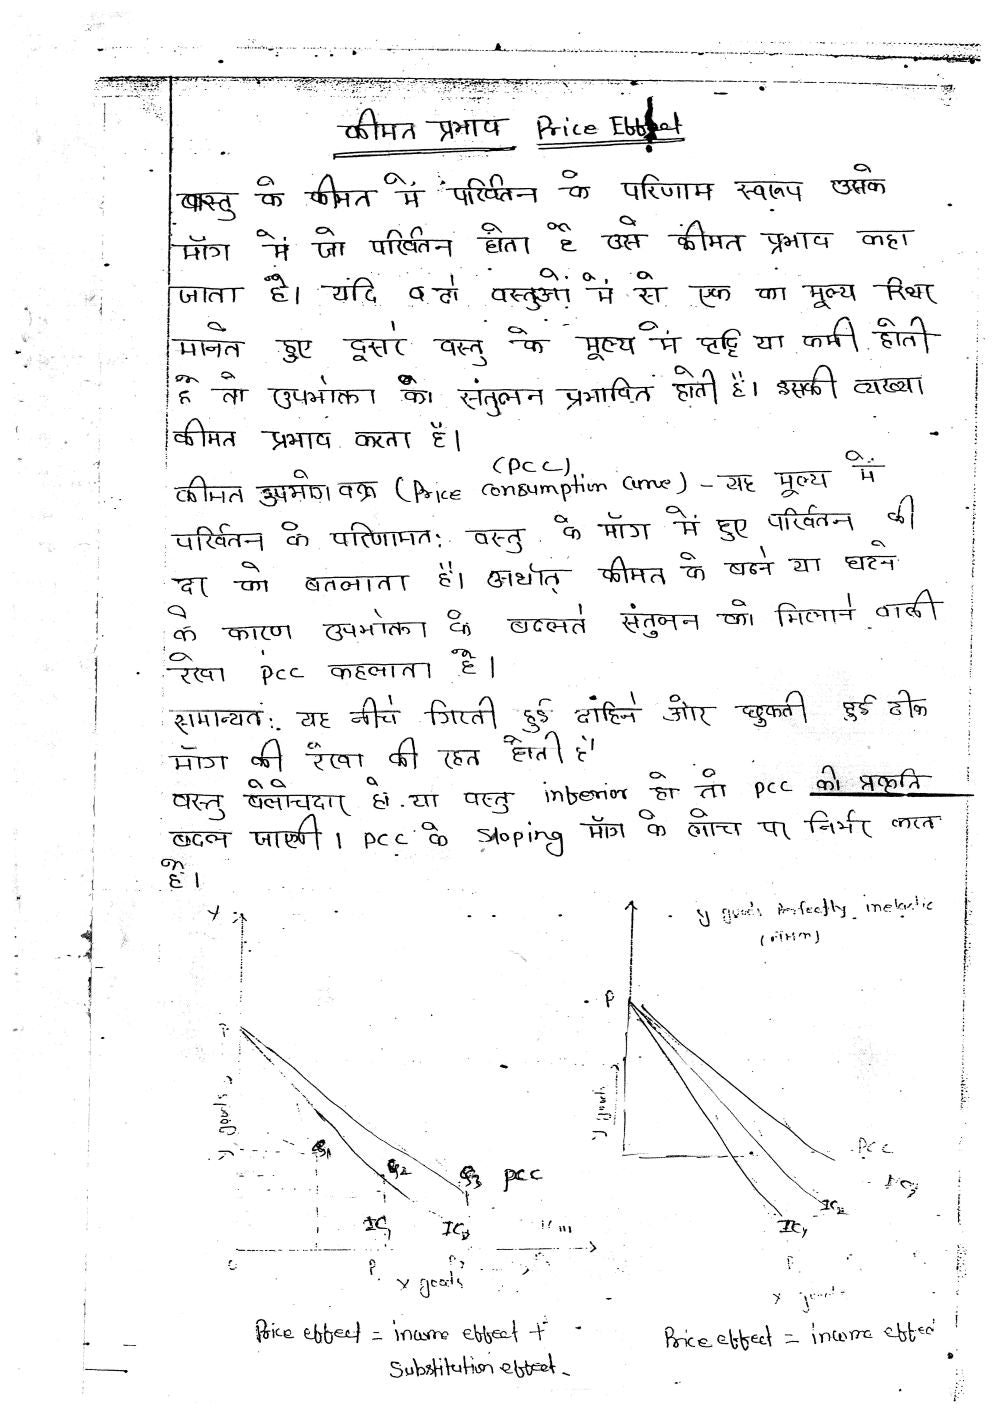 कीमत प्रभाव Price Effect
वास्तु के कीमत में परिर्वतन के परिणाम स्वरूप उसके
माँग में जो परिर्वतन होता है उसे कीमत प्रभाव कहा
जाता है। यदि दो वस्तुओं में से एक का मूल्य स्थिर
मानते हुए दूसरे वस्तु के मूल्य में वृद्दि या कमी होती
है तो उपभोक्ता का संतुलन प्रभावित होती है। इसकी व्यख्या
कीमत प्रभाव करता है।
(PCC)
कीमत उपभोग वक्र (Price consumption curve) - यह मूल्य में
परिर्वतन के परिणामतः वस्तु के माँग में हुए परिर्वतन की
दर को बतलाता है। अर्थात् कीमत के बढने या घटने
के कारण उपभोक्ता के बदलते संतुलन को मिलाने वाली
रेखा PCC कहलाता है।
सामान्यतः यह नीचे गिरती हुई दाहिने ओर झुकती हुई ठीक
माँग की रेखा की तरह होती है
वस्तु बेलोचदार हो या वस्तु inferior हो तो PCC की प्रकृति
बदल जाएगी। PCC के sloping माँग के लोच पर निर्भर करत
है।
Y
y goods perfectly inelastic
P
P
y goods
y goods
PCC
e1
e2
e3 PCC
IC3
IC2
IC1
IC1 IC2
P
P P
x goods
x goods
Price effect = income effect +
Substitution effect
Price effect = income effect